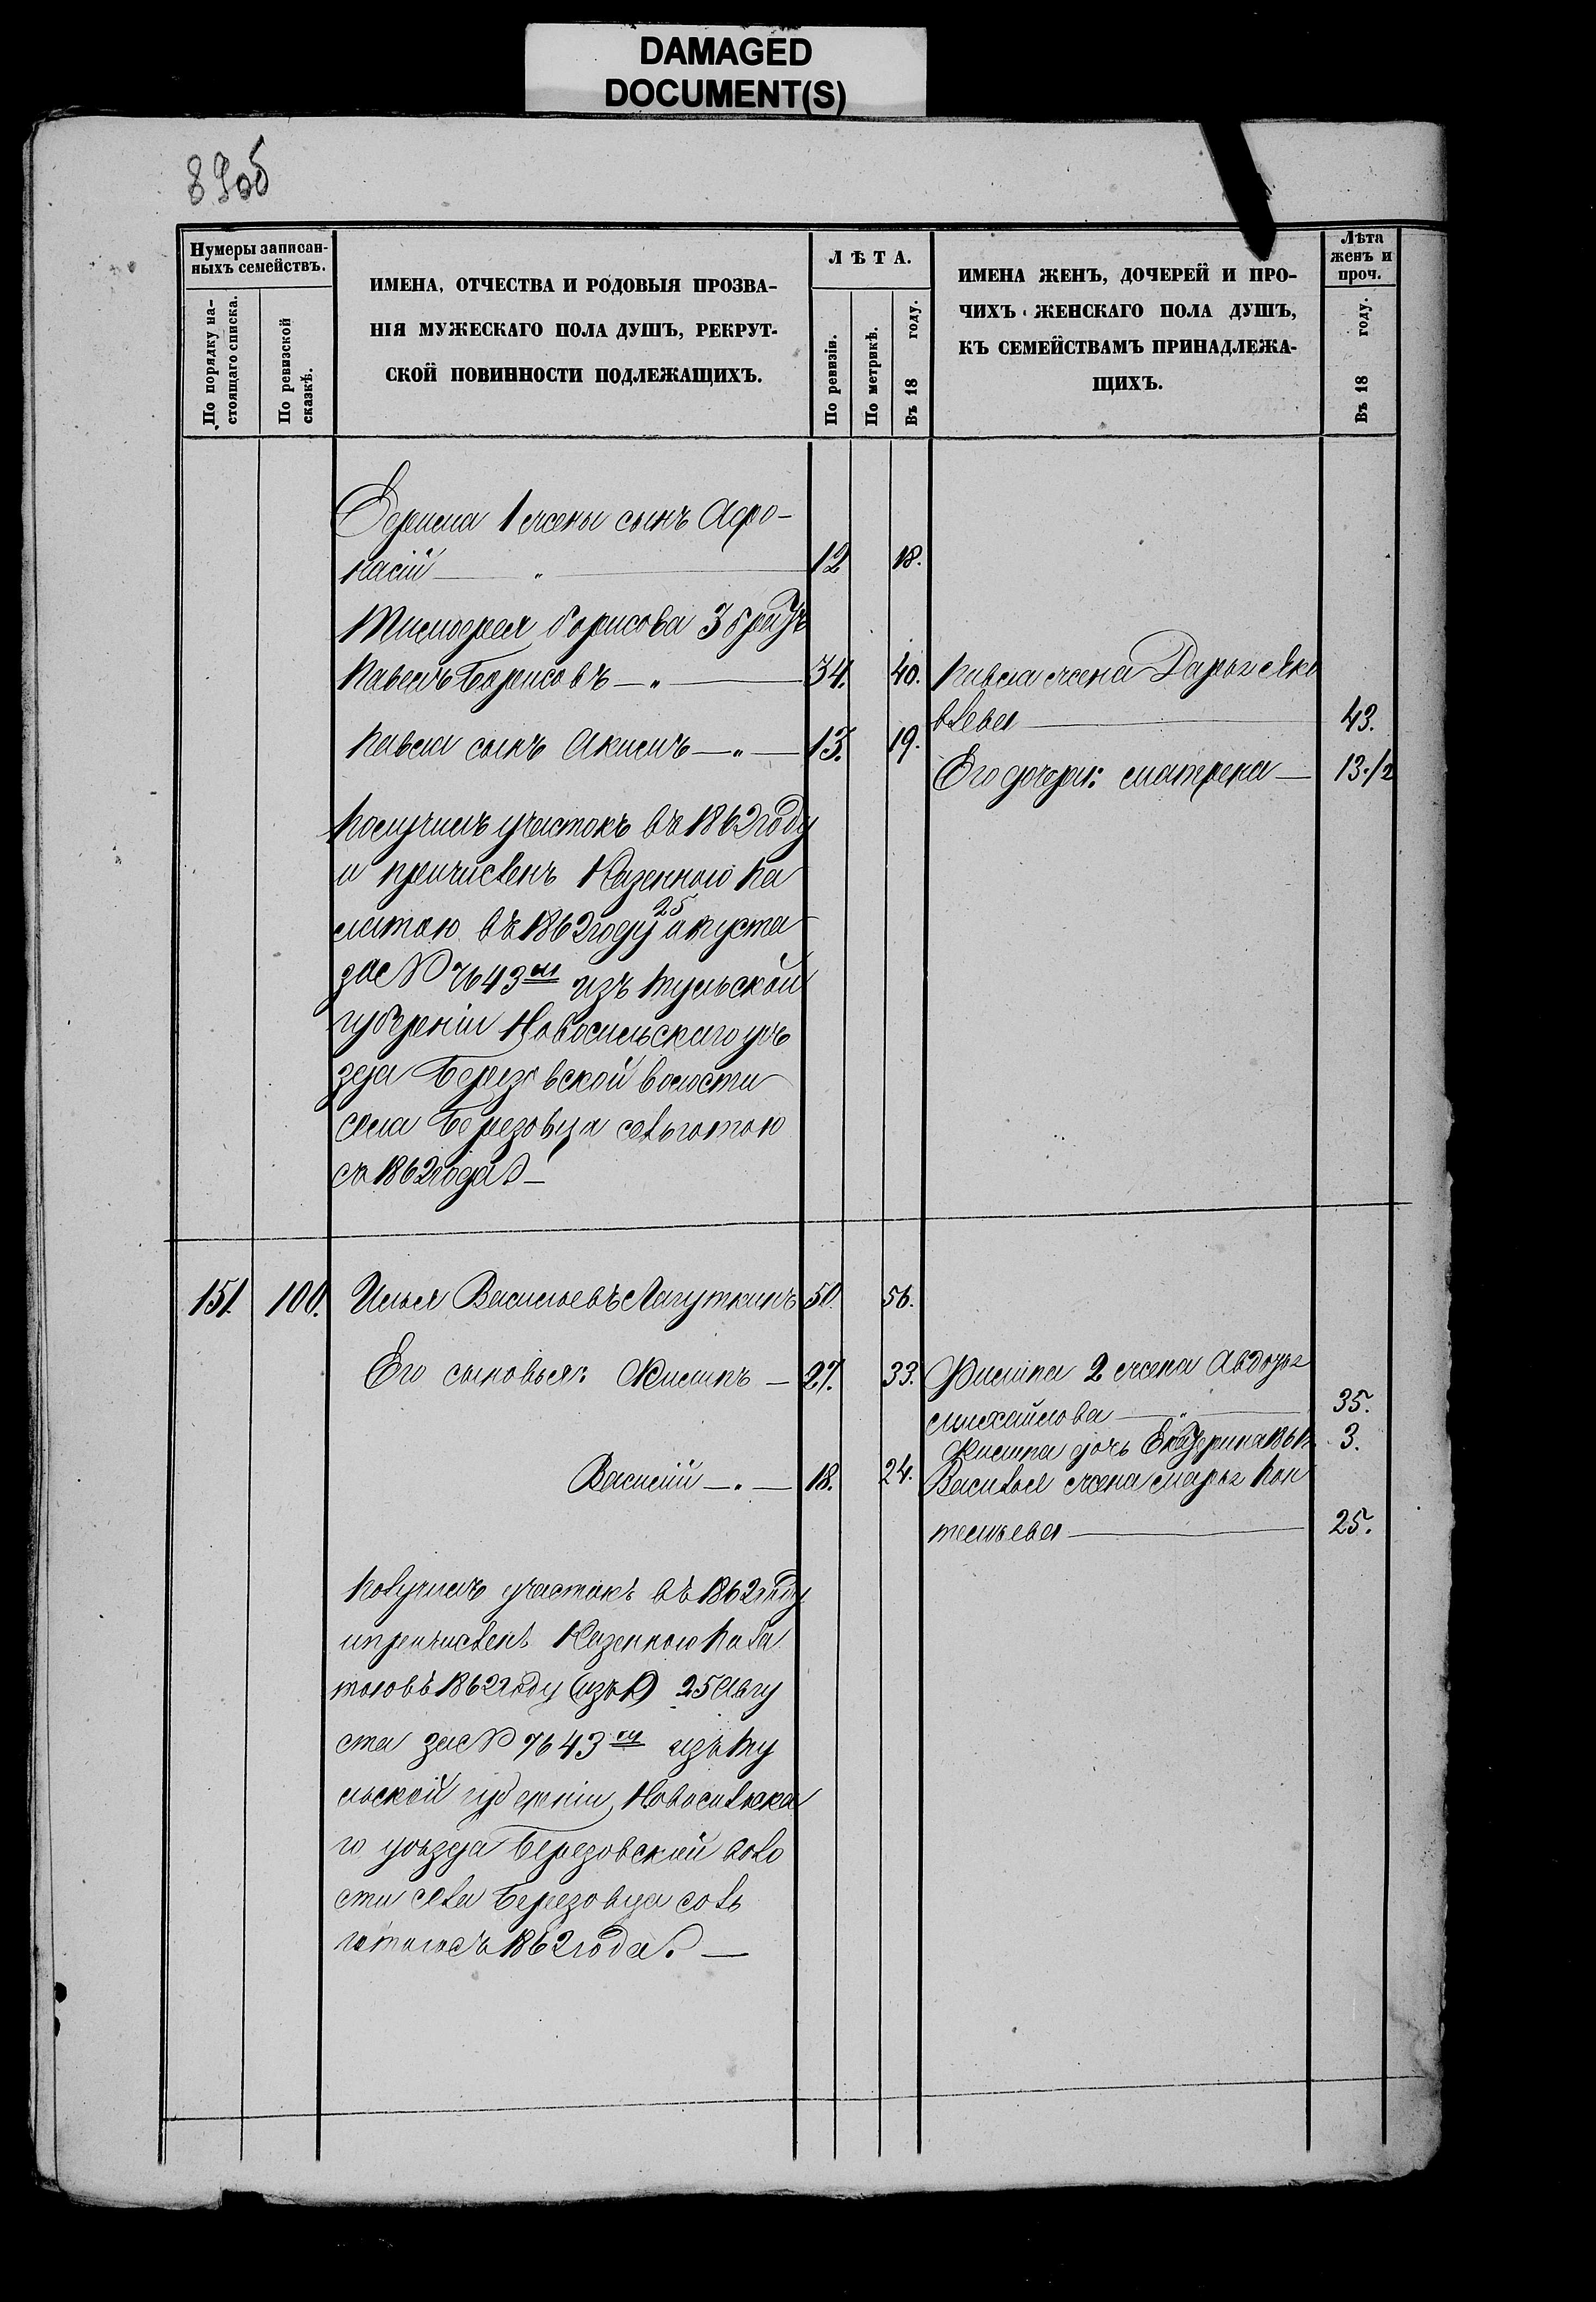 DAMAGED
DOCUMENT(S)
89об
Нумеры записан-
ныхъ семействъ.
По порядку на-
стоящаго списка.
По ревизской
сказкѣ.
ИМЕНА, ОТЧЕСТВА И РОДОВЫЯ ПРОЗВА-
НІЯ МУЖЕСКАГО ПОЛА ДУШЪ, РЕКРУТ-
СКОЙ ПОВИННОСТИ ПОДЛЕЖАЩИХЪ.
ЛѢТА.
По ревизіи.
По метрикѣ.
Въ 18 году.
ИМЕНА ЖЕНЪ, ДОЧЕРЕЙ И ПРО-
ЧИХЪ ЖЕНСКАГО ПОЛА ДУШЪ,
КЪ СЕМЕЙСТВАМЪ ПРИНАДЛЕЖА-
ЩИХЪ.
Лѣта
женъ и
проч.
Въ 18 году.
1 жены сынъ Афо-
насій — " — 12 18.
Тимофея Борисова 3 братъ
Павелъ Борисовъ — " — 34. 40. Павла жена Дарья Яко
влева — 43.
Павла сынъ Акимъ — " — 13. 19.
Его дочери: Матрена — 13 1/2
Получилъ участокъ въ 1862 году
и причисленъ Казенною Па
латою въ 1862 году 25 августа
за № 7643м изъ Тульской
губерніи Новосильскаго уѣ
зда Березовской волости
села Березовца сльготою
съ 1862 года. —
151. 100. Илья Васильевъ Лагуткинъ 50. 56.
Его сыновья: Филипъ — 27. 33. Филипа 2 жена Авдотья
Михайлова — " — 35.
Филипа дочь Екатерина 3.
Василій — " — 18. 24. Василья жена Марья Пан
телѣева — 25.
Получилъ участокъ въ 1862 году
и причисленъ Казенною Пала
тою въ 1862 году 25 Авгу
ста за № 7643м изъ Ту
льской губерніи Новосильска
го уѣзда Березовской воло
сти села Березовца соль
готою съ 1862 года. —